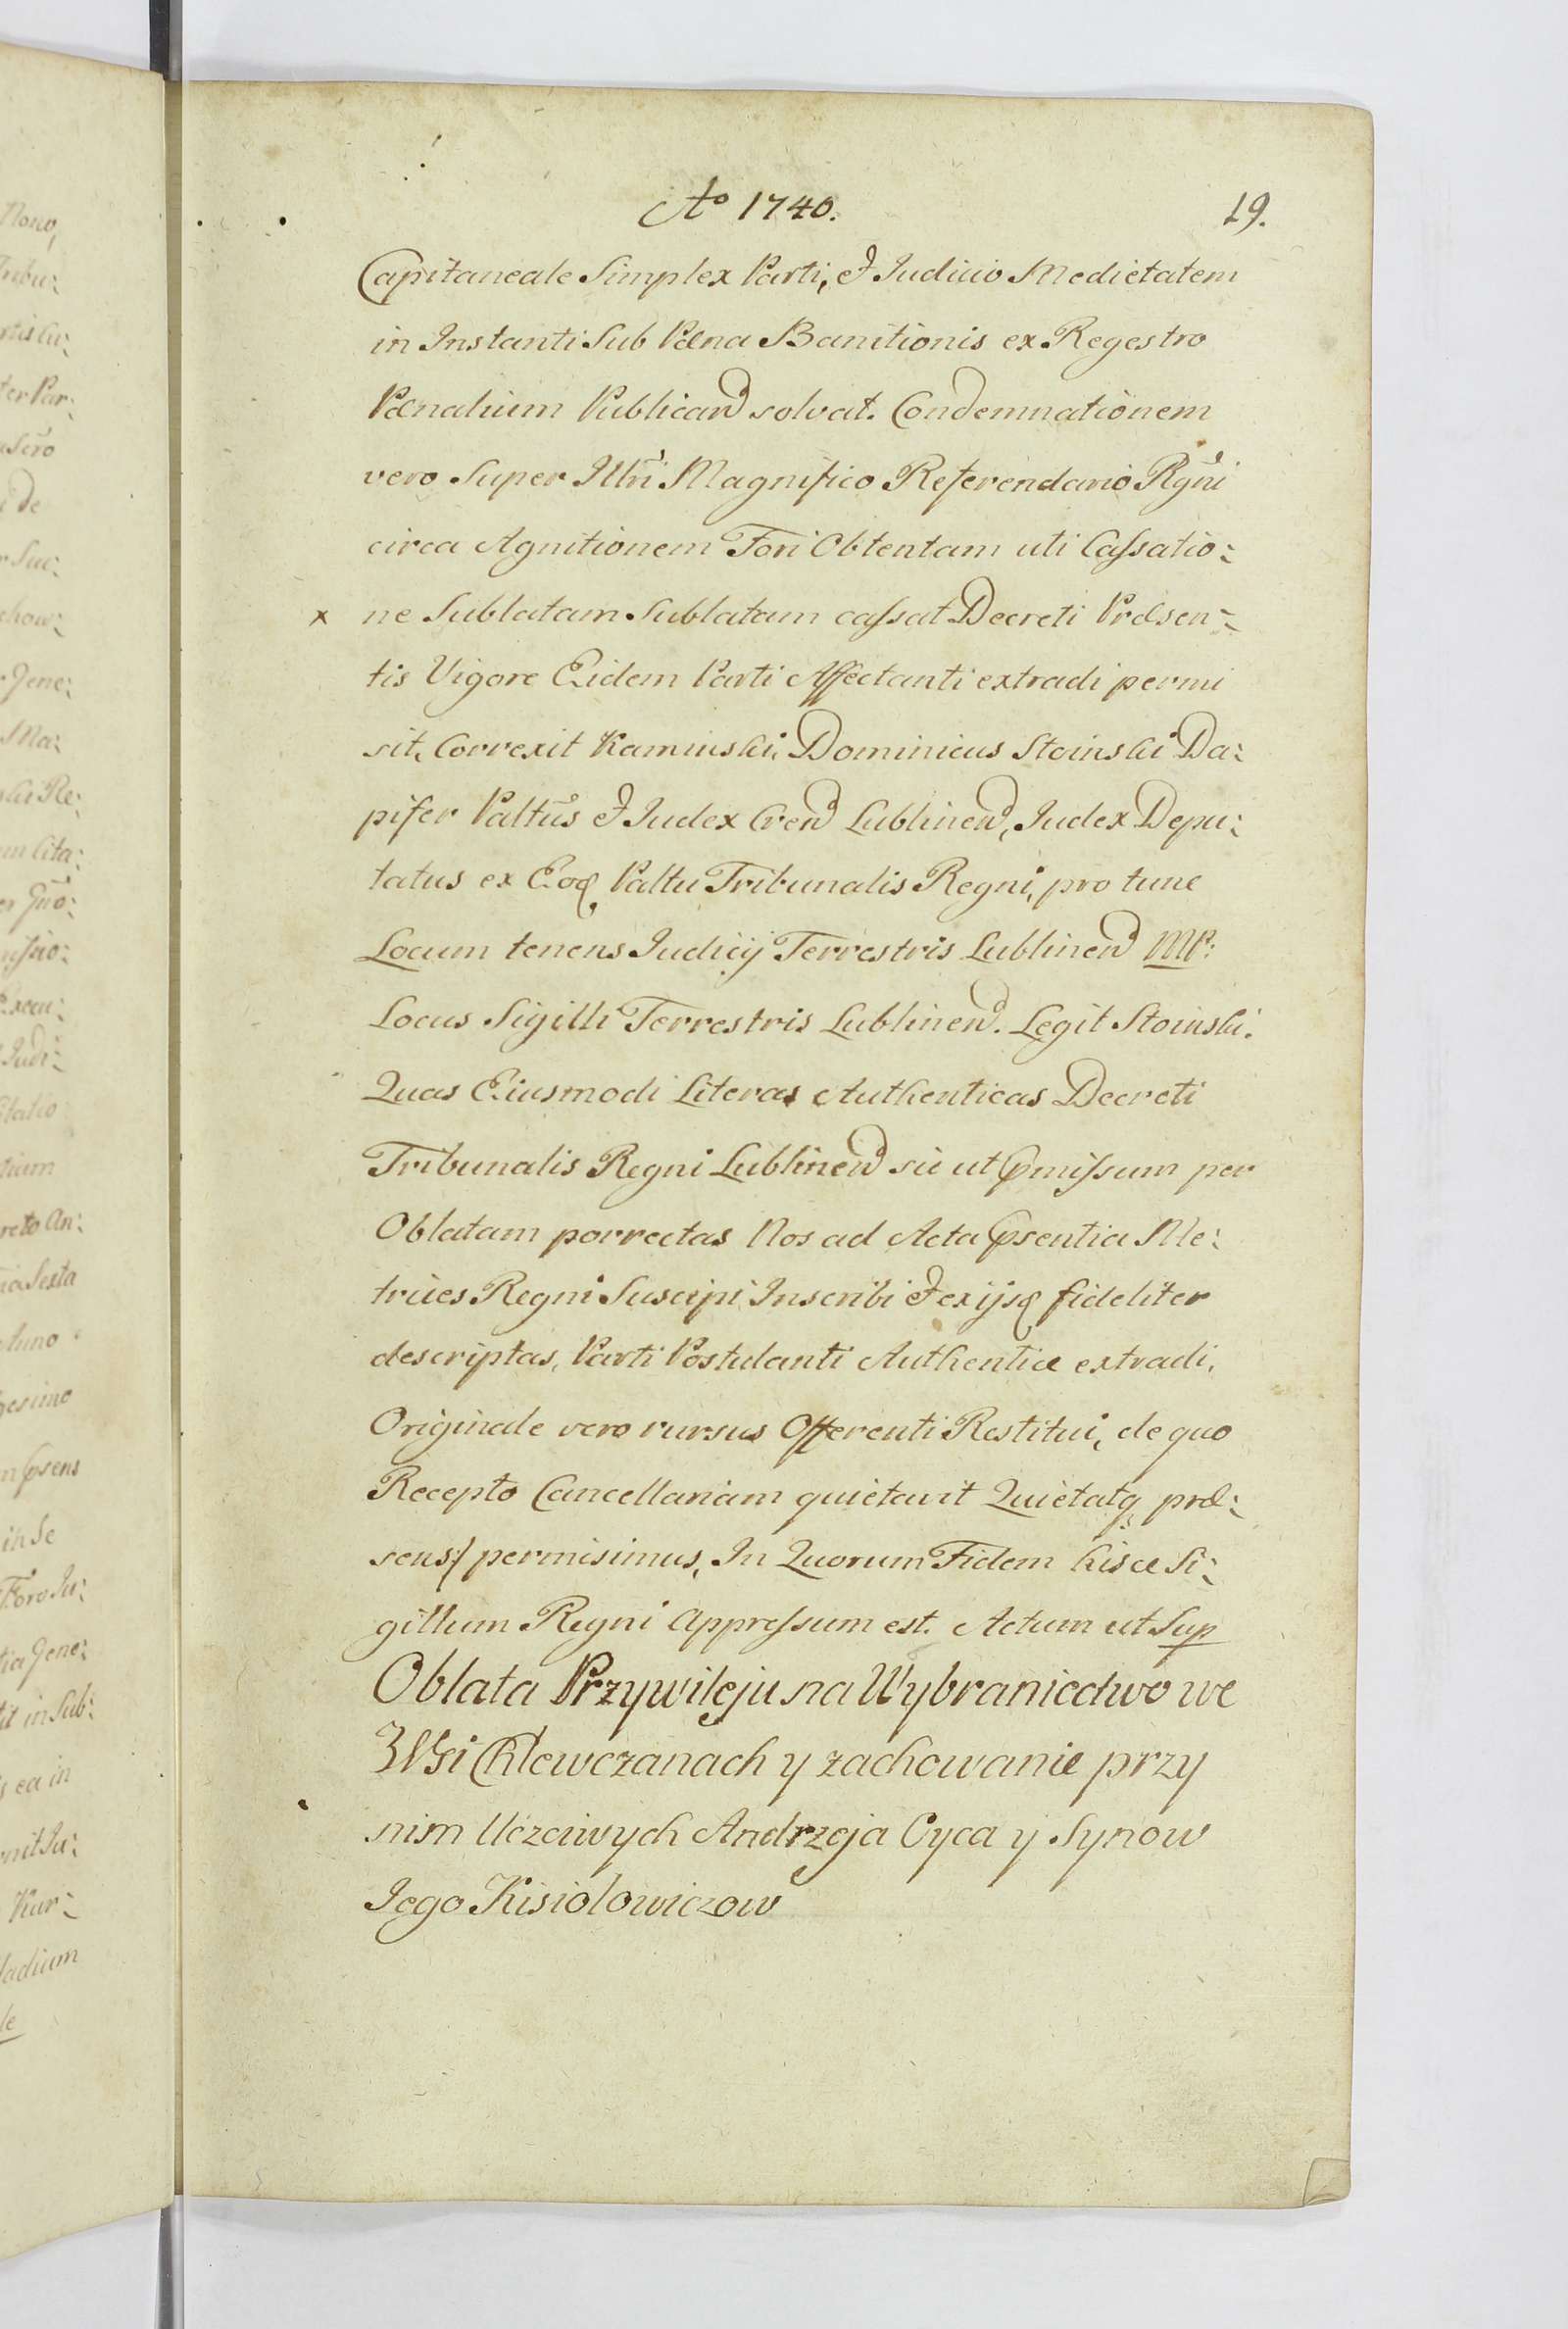 Aº 1740.
19.
Capitaneale Simplex Parti, & Judicio Medietatem
in Instanti Sub Pæna Banitionis ex Regestro
Pænalium Publicand solvat. Condemnationem
vero Super Illri Magnifico Referendario Rgni
circa Agnitionem Fori Obtentam uti Cassatio:
x ne Sublatam Sublatam cassat Decreti Præsen:
tis Vigore Eidem Parti Affectanti extradi permi
sit, Correxit Kaminski, Dominicus Stoinski Da:
pifer Palttus & Judex Cren Lublinen, Judex Depu:
tatus ex Eoq Palttu Tribunalis Regni, pro tunc
Locum tenens Judicij Terrestris Lublinen MP:
Locus Sigilli Terrestris Lublinen. Legit Stoinski.
Quas Eiusmodi Literas Authenticas Decreti
Tribunalis Regni Lublinen sic ut pmissum per
Oblatam porrectas Nos ad Acta psentia Me:
trices Regni Suscipi Inscribi & ex ijsq fideliter
descriptas, Parti Postulanti Authentice extradi,
Originale vero rursus Offerenti Restitui, de quo
Recepto Cancellariam quietavit Quietatq præ:
sens/ permisimus, In Quorum Fidem hisce Si:
gillum Regni Appressum est. Actum ut Sup
Oblata Przywileju na Wybraniectwo we
Wsi Chlewczanach y zachowanie przy
nim Uczciwych Andrzeja Cyca y Synow
Jego Kisiolowiczow